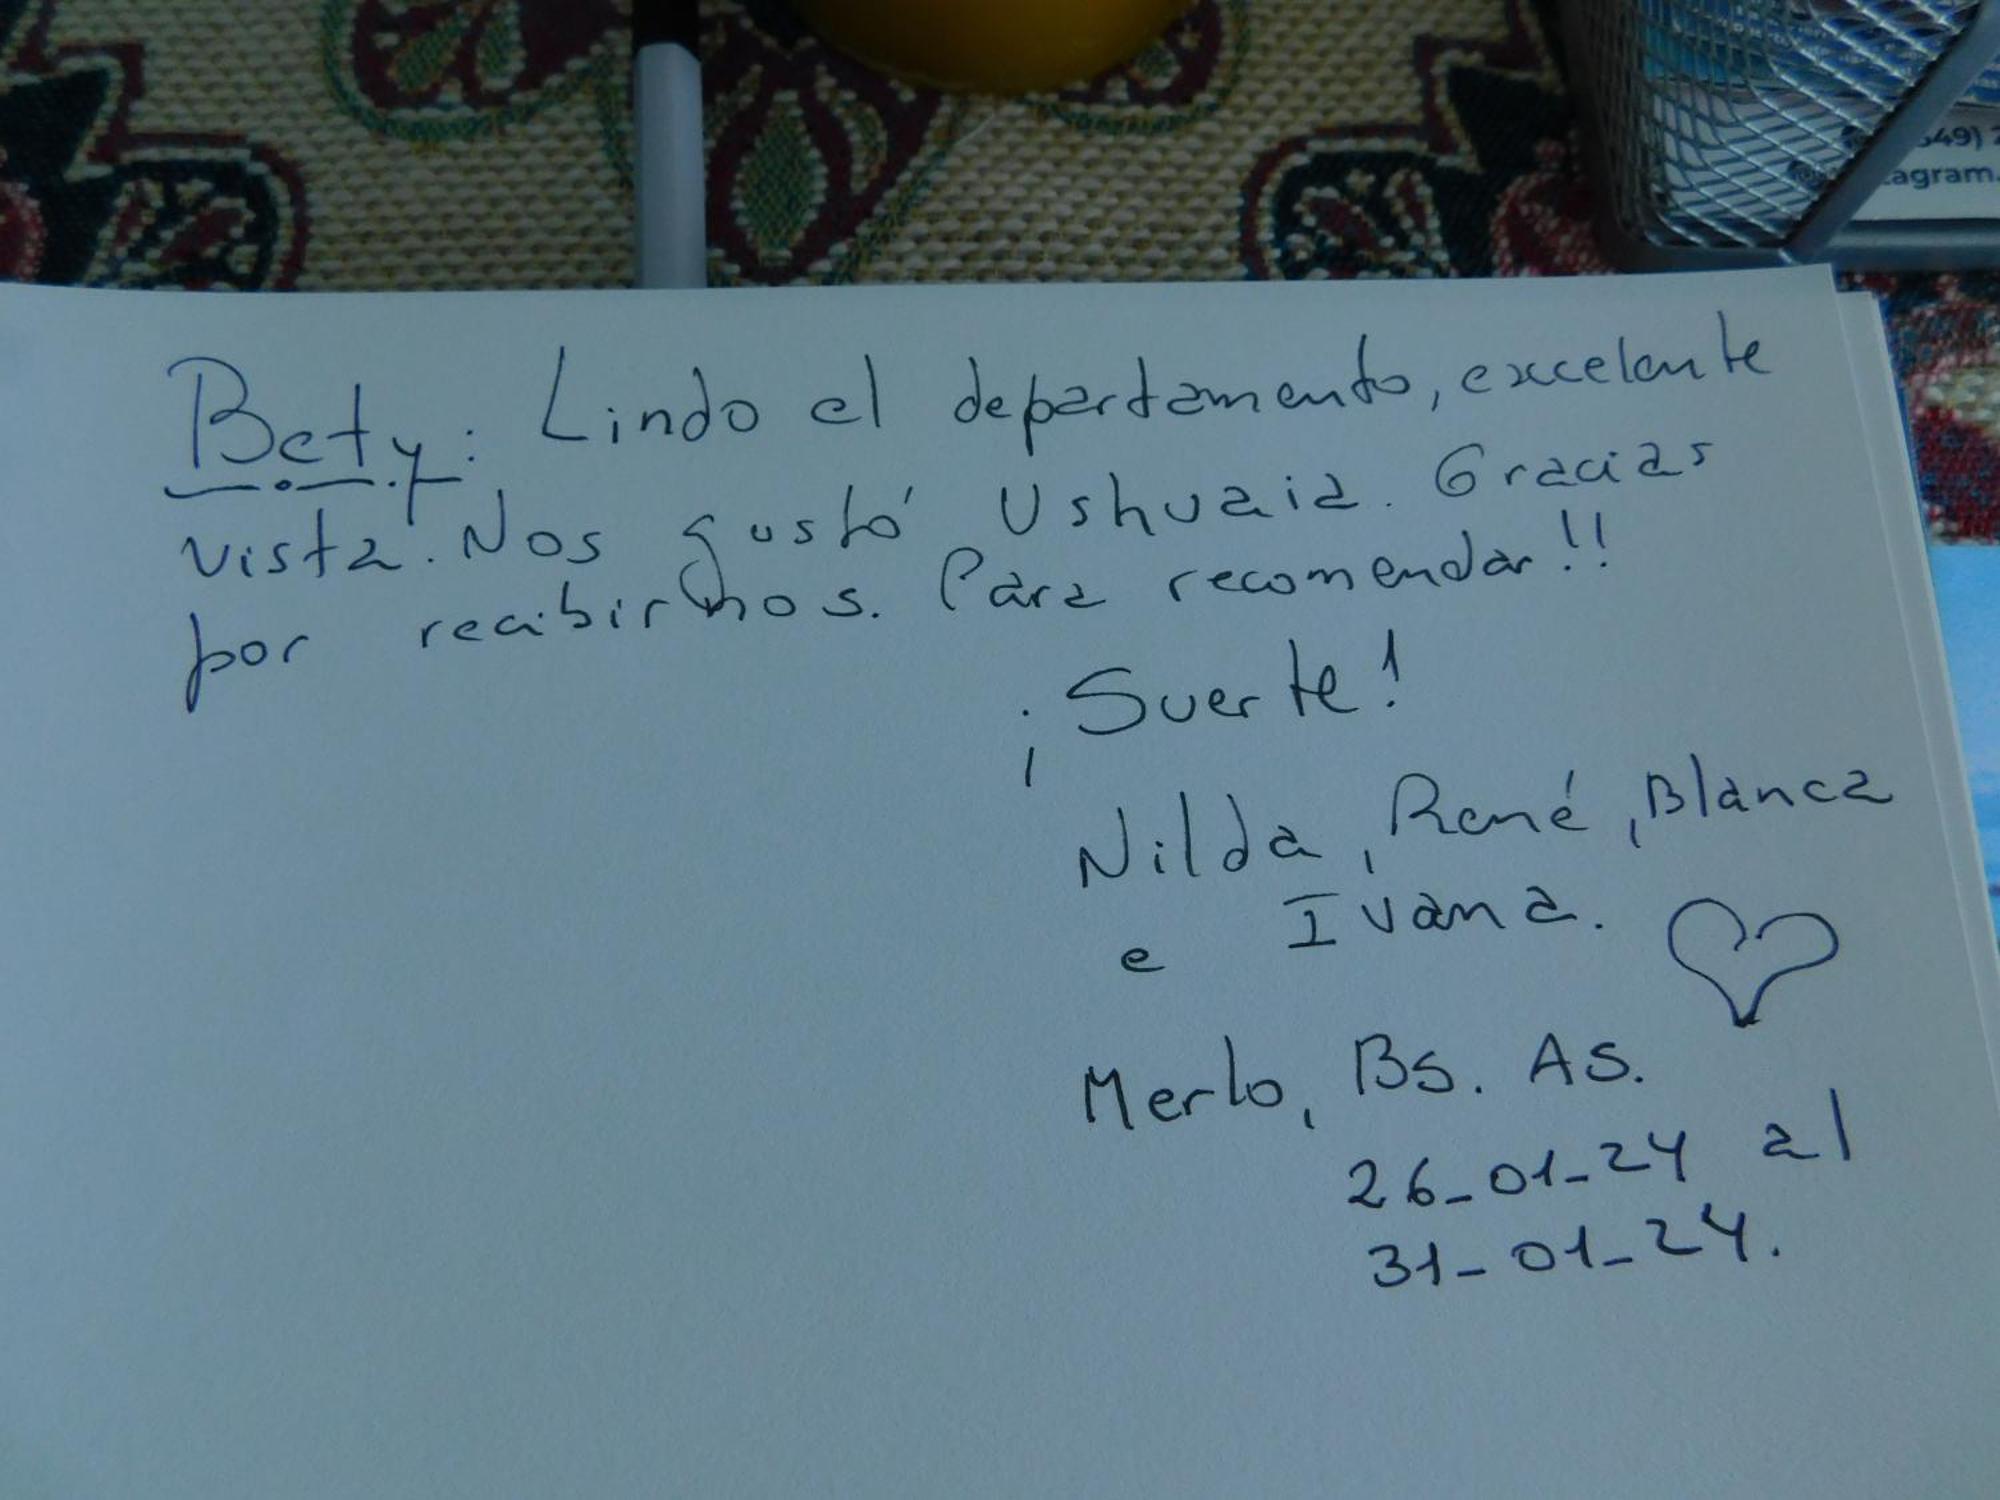 549) 2
tagram.
Bety: Lindo el departamento, excelente
vista. Nos gustó Ushuaia. Gracias
por recibirnos. Para recomendar!!
¡Suerte!
Nilda, René, Blanca
e Ivana.
Merlo, Bs. As.
26-01-24 al
31-01-24.